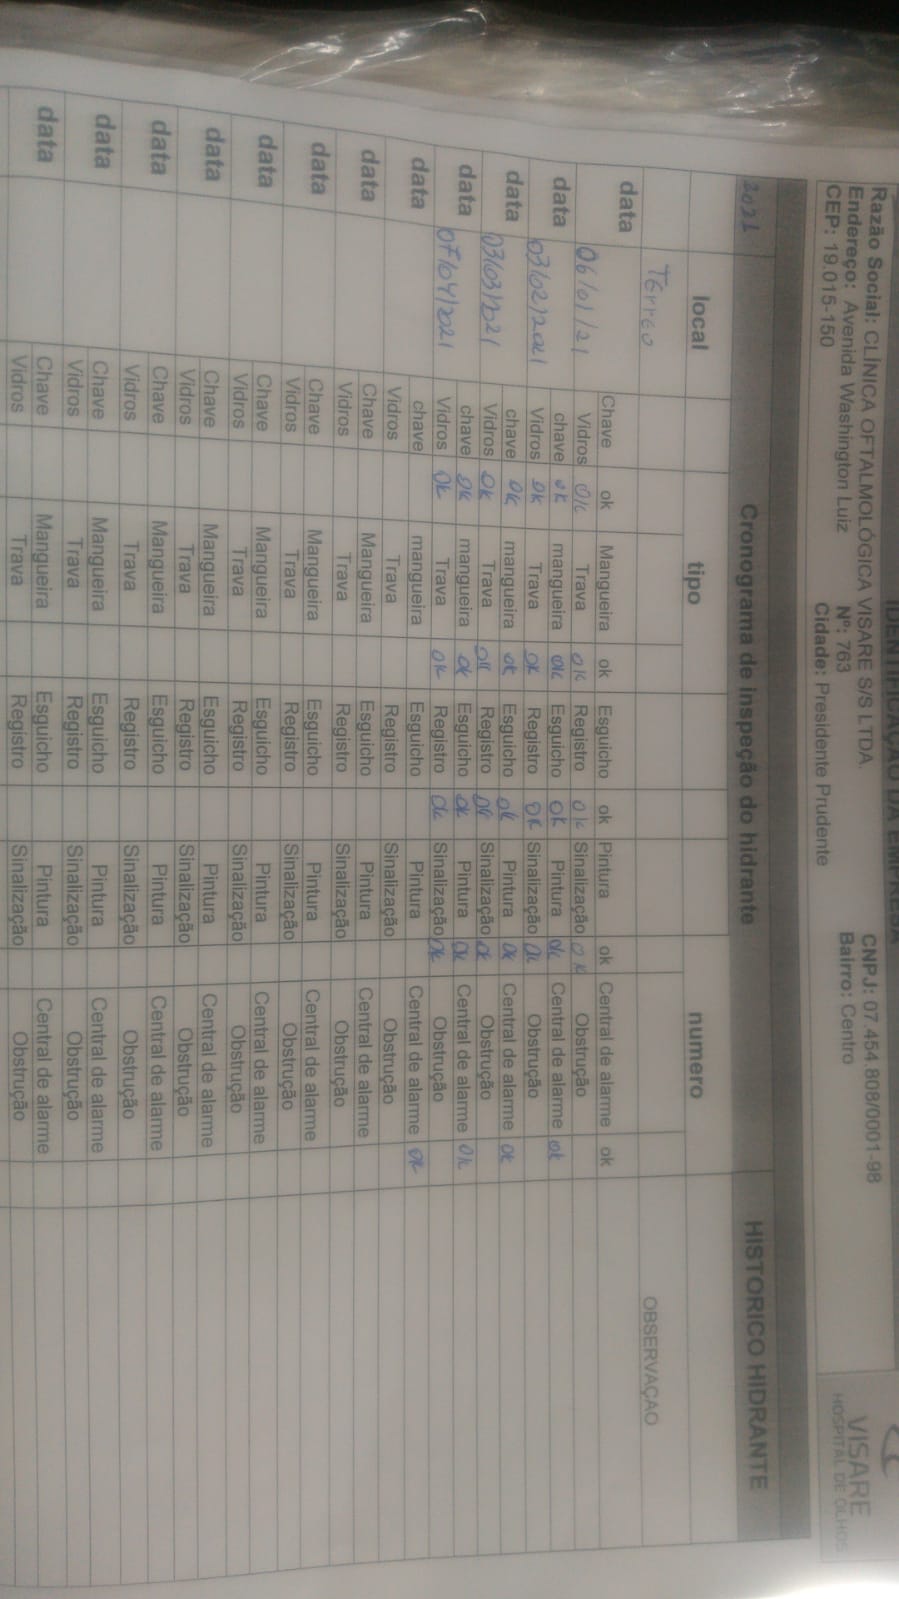 IDENTIFICAÇÃO DA EMPRESA
Razão Social: CLÍNICA OFTALMOLÓGICA VISARE S/S LTDA. CNPJ: 07.454.808/0001-98
Endereço: Avenida Washington Luiz Nº: 763 Bairro: Centro
CEP: 19.015-150 Cidade: Presidente Prudente
VISARE
HOSPITAL DE OLHOS
2021 Cronograma de inspeção do hidrante HISTORICO HIDRANTE
local tipo numero
Térreo OBSERVAÇAO
data
Chave ok Mangueira ok Esguicho ok Pintura ok Central de alarme ok
06/01/21 Vidros ok Trava ok Registro ok Sinalização ok Obstrução
data chave ok mangueira ok Esguicho ok Pintura ok Central de alarme ok
03/02/2021 Vidros ok Trava ok Registro ok Sinalização ok Obstrução
data chave ok mangueira ok Esguicho ok Pintura ok Central de alarme ok
03/03/2021 Vidros ok Trava ok Registro ok Sinalização ok Obstrução
data chave ok mangueira ok Esguicho ok Pintura ok Central de alarme ok
07/04/2021 Vidros ok Trava ok Registro ok Sinalização ok Obstrução
data chave mangueira Esguicho Pintura Central de alarme ok
Vidros Trava Registro Sinalização Obstrução
data Chave Mangueira Esguicho Pintura Central de alarme
Vidros Trava Registro Sinalização Obstrução
data Chave Mangueira Esguicho Pintura Central de alarme
Vidros Trava Registro Sinalização Obstrução
data Chave Mangueira Esguicho Pintura Central de alarme
Vidros Trava Registro Sinalização Obstrução
data Chave Mangueira Esguicho Pintura Central de alarme
Vidros Trava Registro Sinalização Obstrução
data Chave Mangueira Esguicho Pintura Central de alarme
Vidros Trava Registro Sinalização Obstrução
data Chave Mangueira Esguicho Pintura Central de alarme
Vidros Trava Registro Sinalização Obstrução
data Chave Mangueira Esguicho Pintura Central de alarme
Vidros Trava Registro Sinalização Obstrução